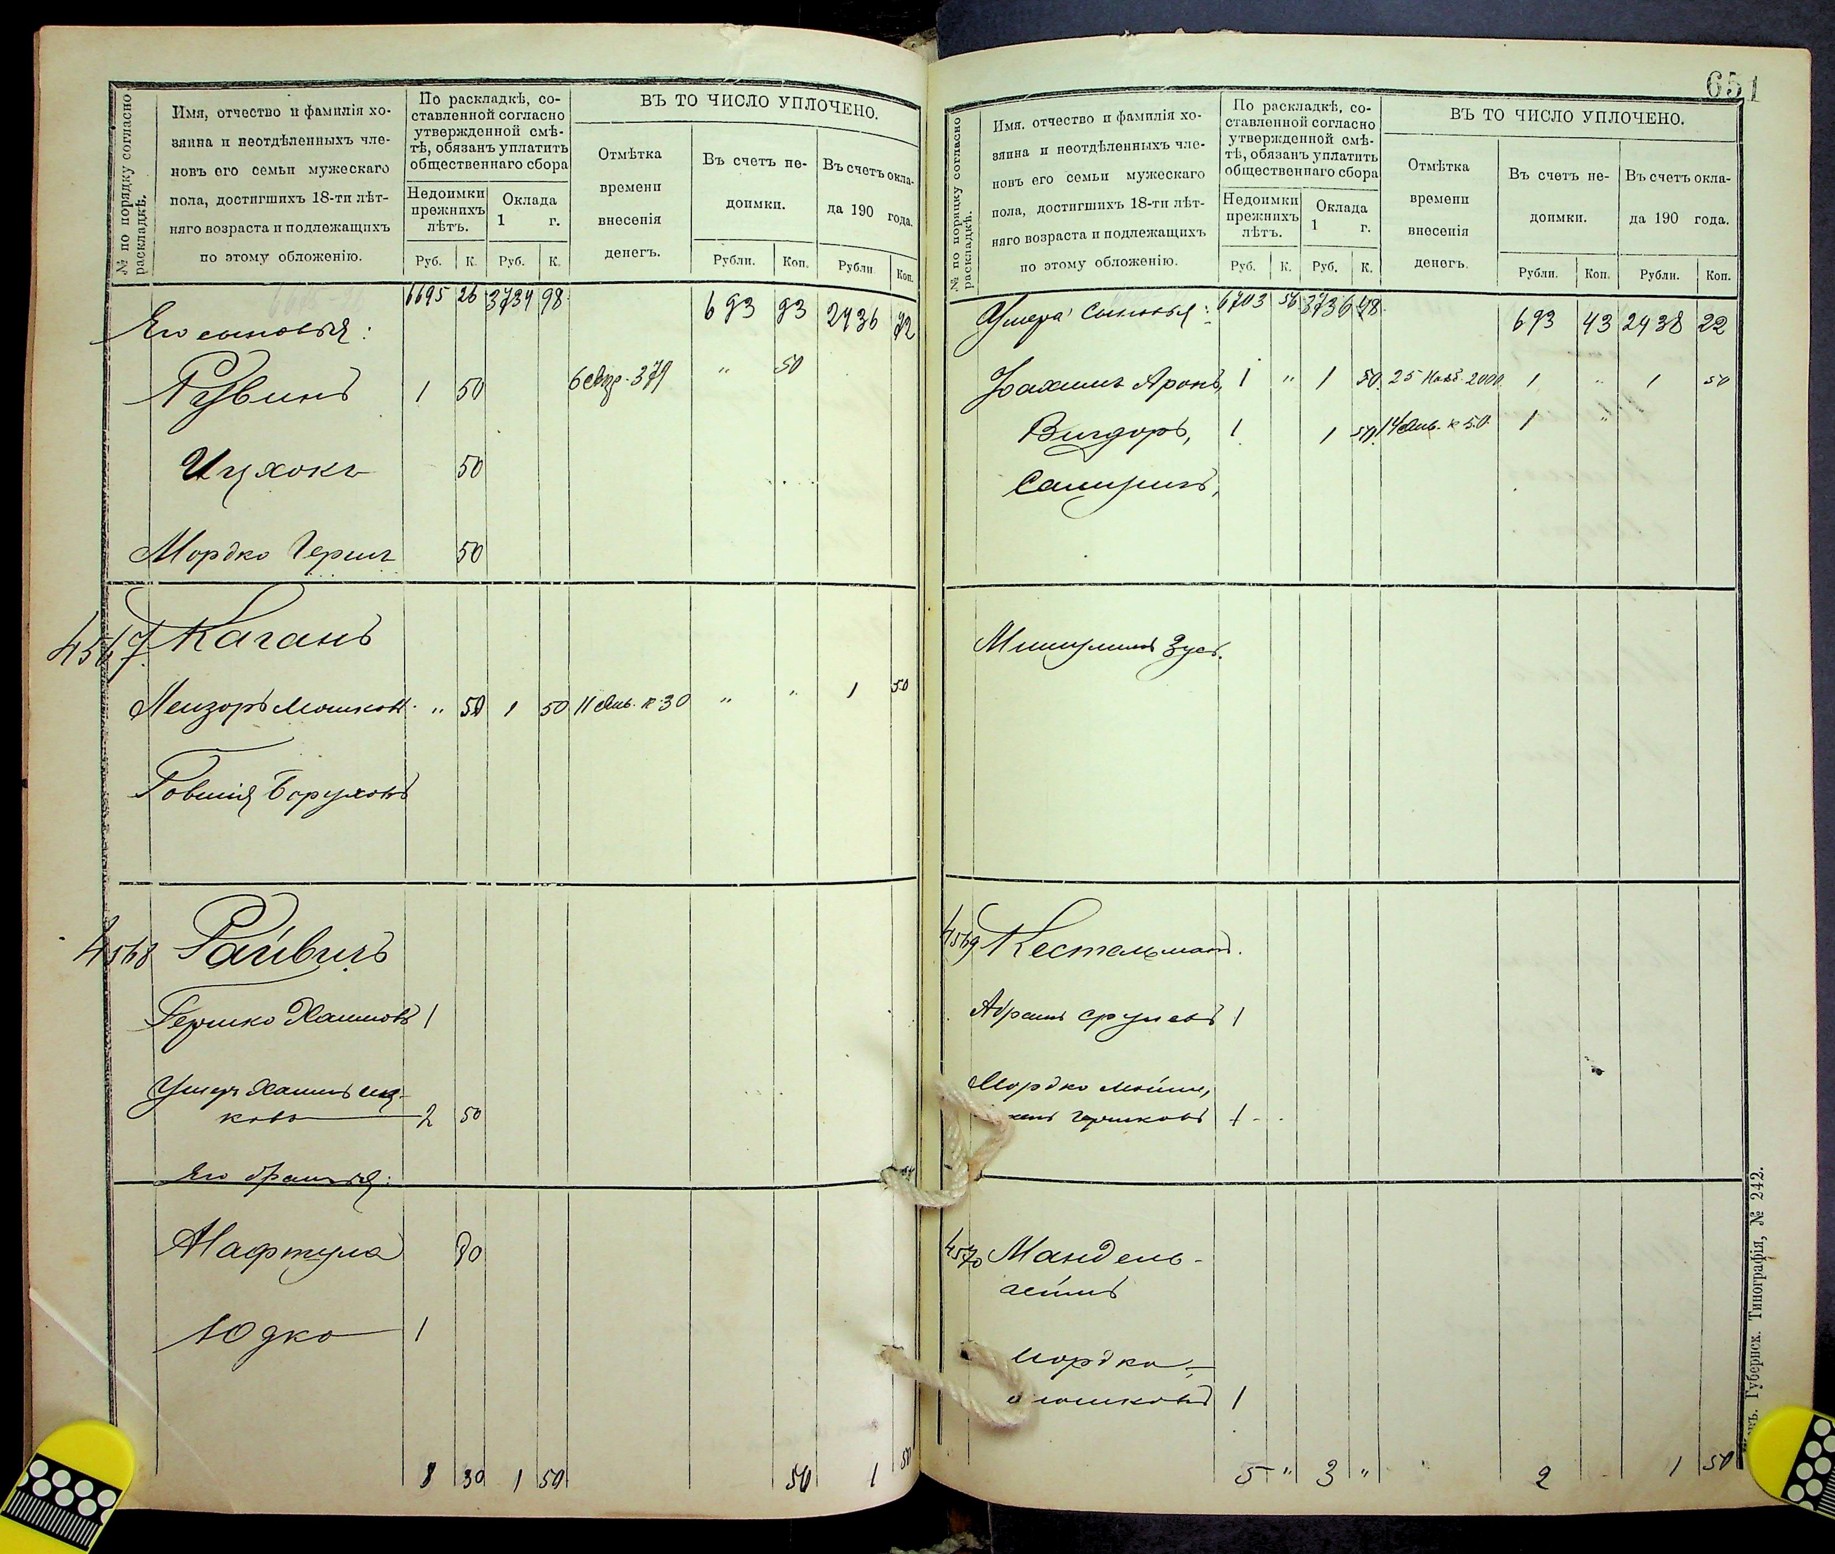 651
№ по порядку согласно раскладкѣ.
Имя, отчество и фамилія хо-
зяина и неотдѣленныхъ чле-
новъ его семьи мужескаго
пола, достигшихъ 18-ти лѣт-
няго возраста и подлежащихъ
по этому обложенію.
По раскладкѣ, со-
ставленной согласно
утвержденной смѣ-
тѣ, обязанъ уплатить
общественнаго сбора
Недоимки
прежнихъ
лѣтъ.
Оклада
1 г.
Руб. К. Руб. К.
ВЪ ТО ЧИСЛО УПЛОЧЕНО.
Отмѣтка
времени
внесенія
денегъ.
Въ счетъ не-
доимки.
Рубли. Коп.
Въ счетъ окла-
да 190 года.
Рубли Коп.
6695 26 3734 98 693 93 2436 72
Его сыновья:
Рувинъ 1 50 379 " 50
Ицхокъ 50
Мордко Герш 50
4567 Каганъ
Лейзоръ Мошков " 50 1 50 11 Янв. № 30 " " 1 50
Говшія Боруховъ
4568 Райвичъ
Гершко Хаимовъ 1
Ушеръ Хаимъ Иц-
ковъ 2 50
Его братья:
Нафтула 30
Юдко 1
8 30 1 50 50 1 50
№ по порядку согласно раскладкѣ.
Имя, отчество и фамилія хо-
зяина и неотдѣленныхъ чле-
новъ его семьи мужескаго
пола, достигшихъ 18-ти лѣт-
няго возраста и подлежащихъ
по этому обложенію.
По раскладкѣ, со-
ставленной согласно
утвержденной смѣ-
тѣ, обязанъ уплатить
общественнаго сбора
Недоимки
прежнихъ
лѣтъ.
Оклада
1 г.
Руб. К. Руб. К.
ВЪ ТО ЧИСЛО УПЛОЧЕНО.
Отмѣтка
времени
внесенія
денегъ.
Въ счетъ не-
доимки.
Рубли. Коп.
Въ счетъ окла-
да 190 года.
Рубли. Коп.
Ушера сыновья: 6703 56 3736 48 693 43 2438 22
Іоахимъ Аронъ, 1 " 1 50 25 Нояб. 2000 1 " 1 50
Вигдоръ, 1 1 50 14 Янв. № 50 1 "
Самуилъ,
Мишулимъ Зусь.
4569 Кестельманъ.
Абрамъ Сруневъ 1
Мордко Мойше,
Гершковъ 1
4570 Мандель-
Мордко
Мошковъ 1
5 " 3 " 2 1 50
Губернск. Типографія, № 242.